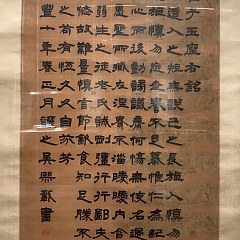 子玉座右銘
道人之短無說己之長施人慎勿
施慎勿忘世譽不足慕惟仁為紀
心而後動謗議庸何傷無使名過
愚聖所臧在涅貴不淄曖曖內含
弱生之徒老氏誡剛彊行行鄙夫
悠故難量慎言節飲食知足勝不
之苟有恆久久自芬芳
豐十年春正月讓之吳熙載書